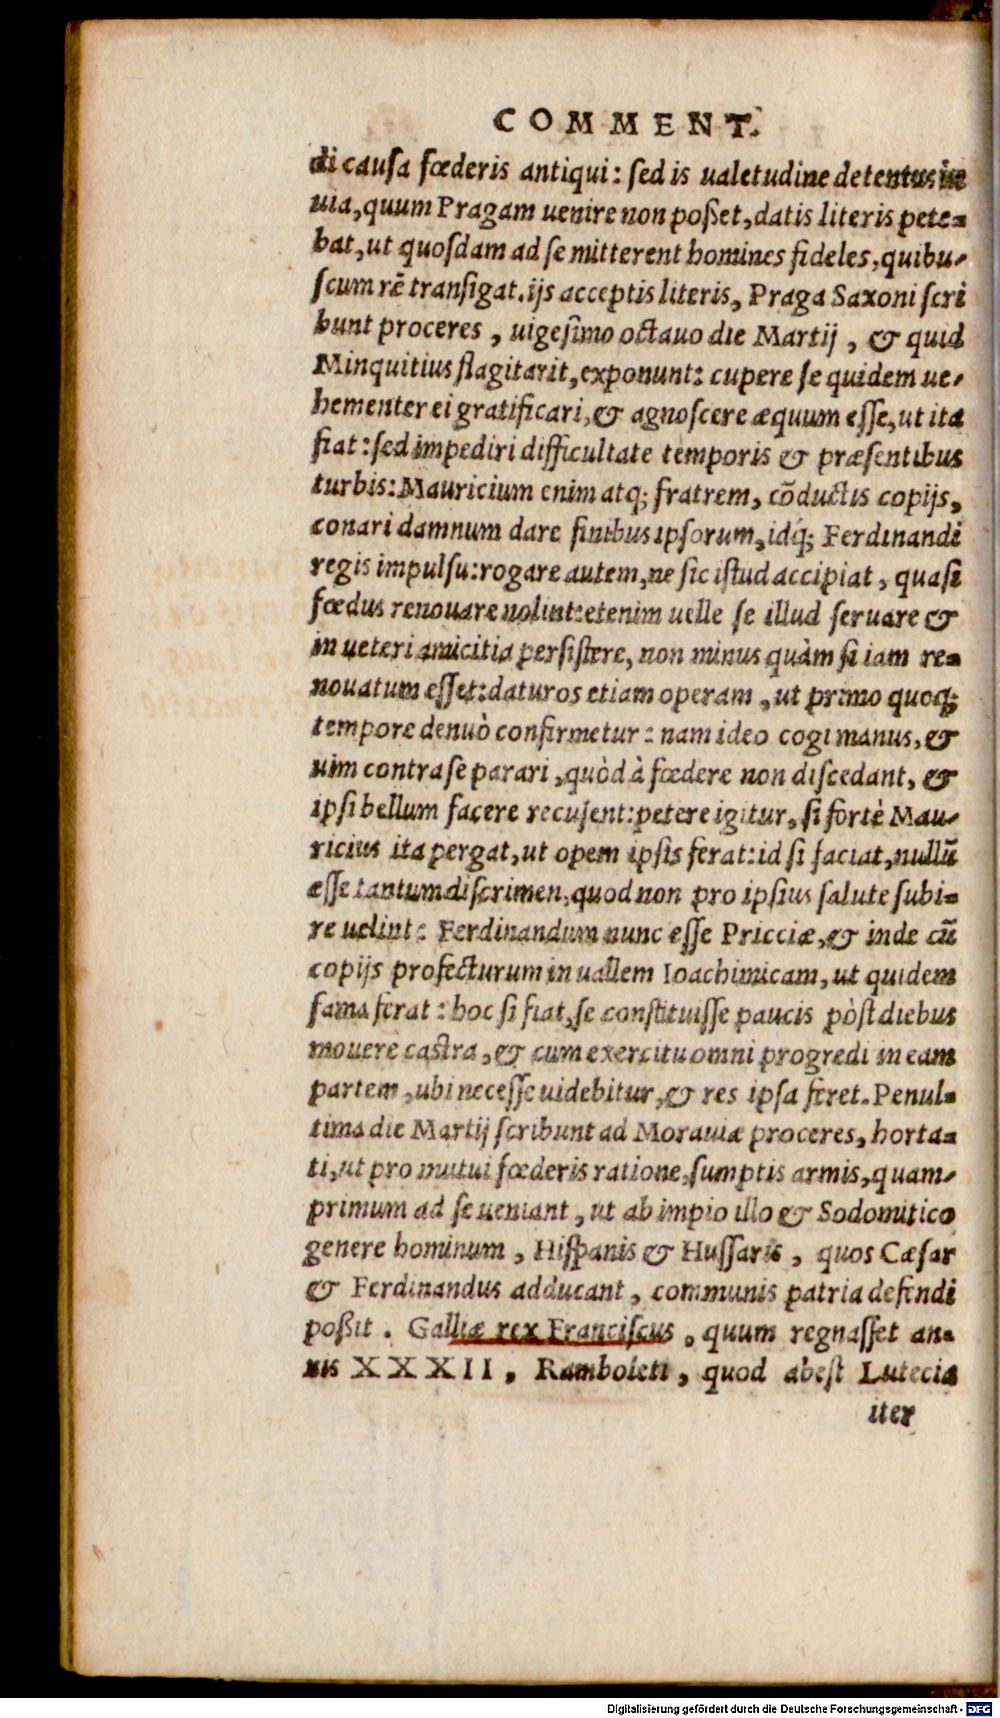 COMMENT.
di causa fœderis antiqui: sed is ualetudine detentus in
uia, quum Pragam uenire non poßet, datis literis pete-
bat, ut quosdam ad se mitterent homines fideles, quibu-
scum rē transigat. ijs acceptis literis, Praga Saxoni scri
bunt proceres, uigesimo octauo die Martij, & quid
Minquitius flagitarit, exponunt: cupere se quidem ue-
hementer ei gratificari, & agnoscere æquum esse, ut ita
fiat: sed impediri difficultate temporis & præsentibus
turbis: Mauricium enim atq; fratrem, cōductis copijs,
conari damnum dare finibus ipsorum, idq́; Ferdinandi
regis impulsu: rogare autem, ne sic istud accipiat, quasi
fœdus renouare nolint: etenim uelle se illud seruare &
in ueteri amicitia persistere, non minus quàm si iam re-
nouatum esset: daturos etiam operam, ut primo quoq;
tempore denuò confirmetur: nam ideo cogi manus, &
uim contra se parari, quòd à fœdere non discedant, &
ipsi bellum facere recusent: petere igitur, si fortè Mau-
ricius ita pergat, ut opem ipsis ferat: id si faciat, nullū
esse tantum discrimen, quod non pro ipsius salute subi-
re uelint: Ferdinandum nunc esse Pricciæ, & inde cū
copijs profecturum in uallem Ioachimicam, ut quidem
fama ferat: hoc si fiat, se constituisse paucis pòst diebus
mouere castra, & cum exercitu omni progredi in eam
partem, ubi necesse uidebitur, & res ipsa feret. Penul-
tima die Martij scribunt ad Morauiæ proceres, horta-
ti, ut pro mutui fœderis ratione, sumptis armis, quam-
primum ad se ueniant, ut ab impio illo & Sodomitico
genere hominum, Hispanis & Hussaris, quos Cæsar
& Ferdinandus adducant, communis patria defendi
poßit. Galliæ rex Franciscus, quum regnasset an-
nis XXXII, Ramboleti, quod abest Lutecia
iter
Digitalisierung gefördert durch die Deutsche Forschungsgemeinschaft - DFG